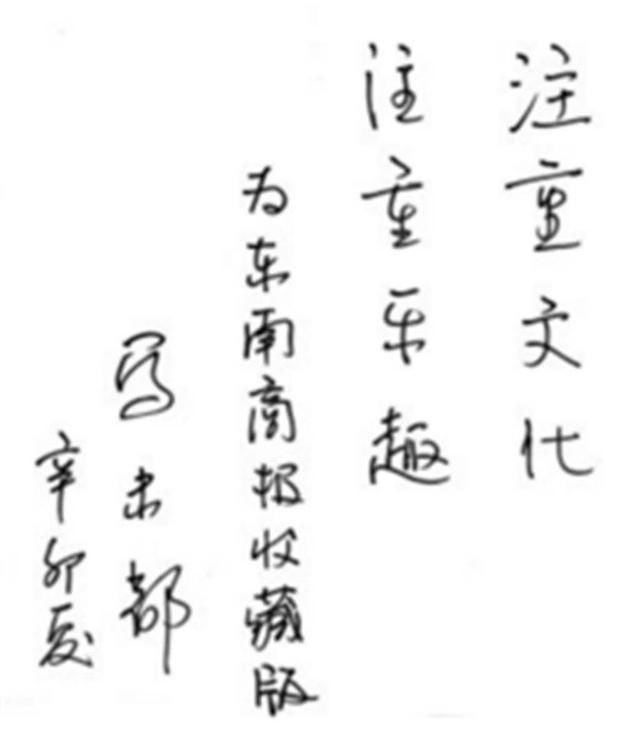 注重文化
注重乐趣
为东南商报收藏版
马未都
辛卯夏